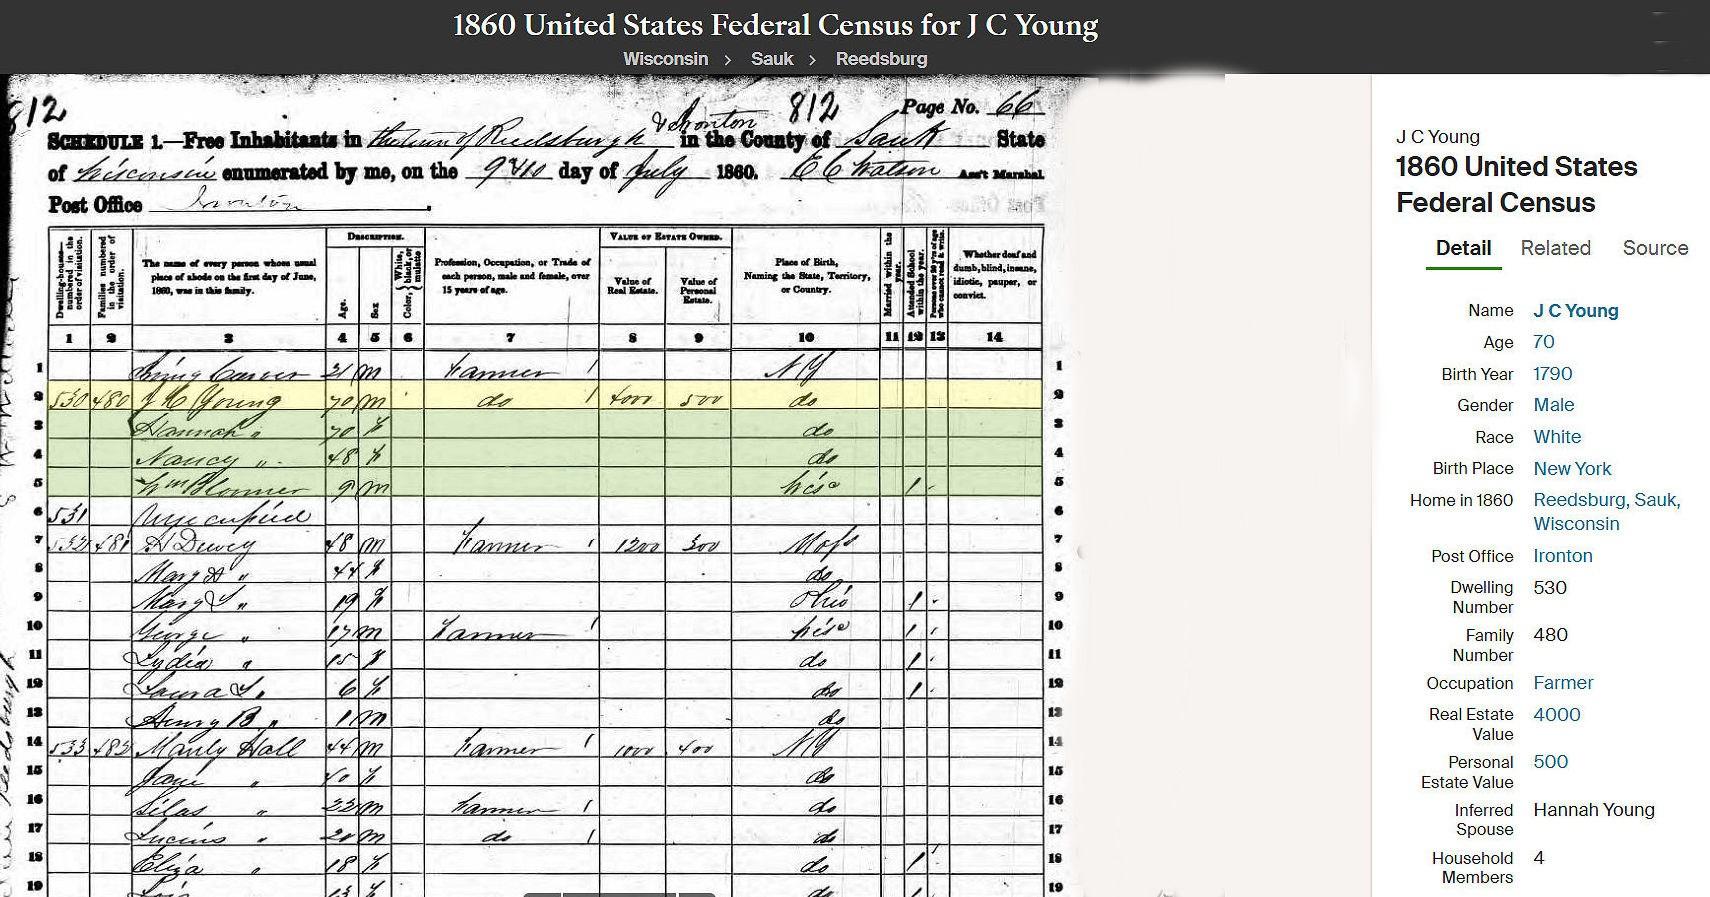 1860 United States Federal Census for J C Young
Wisconsin > Sauk > Reedsburg
812 812 Page No. 66
& Ironton
SCHEDULE 1.—Free Inhabitants in the town of Reedsburgh in the County of Sauk State
of Wisconsin enumerated by me, on the 9 & 10 day of July 1860. E C Watson Ass't Marshal
Post Office Ironton
Dwelling-houses— numbered in the order of visitation.
Families numbered in the order of visitation.
The name of every person whose usual place of abode on the first day of June, 1860, was in this family.
DESCRIPTION.
Age.
Sex
Color, White, black, or mulatto
Profession, Occupation, or Trade of each person, male and female, over 15 years of age.
VALUE OF ESTATE OWNED.
Value of Real Estate.
Value of Personal Estate.
Place of Birth, Naming the State, Territory, or Country.
Married within the year.
Attended School within the year.
Persons over 20 y'rs of age who cannot read & write.
Whether deaf and dumb, blind, insane, idiotic, pauper, or convict.
1 2 3 4 5 6 7 8 9 10 11 12 13 14
1 Carver 21 m Farmer / NY 1
2 530 480 J C Young 70 m do / 4000 500 do 2
3 Hannah " 70 f do 3
4 Nancy " 48 f do 4
5 Wm 9 m Wisc / 5
6 531 Unoccupied 6
7 532 481 A Dewey 48 m Farmer / 1200 300 Mass 7
8 Mary A " 44 f do 8
9 Mary " 19 f Ohio / 9
10 George " 17 m Farmer / Wisc / 10
11 Lydia " 15 f do / 11
12 Laura " 6 f do / 12
13 Henry B " 1 m do 13
14 533 482 Manly Hall 44 m Farmer / 1000 400 NY 14
15 Jane " 40 f do 15
16 Silas " 22 m Farmer / do 16
17 Lucius " 20 m do / do 17
18 Eliza " 18 f do / 18
19 13 f do 19
J C Young
1860 United States
Federal Census
Detail Related Source
Name J C Young
Age 70
Birth Year 1790
Gender Male
Race White
Birth Place New York
Home in 1860 Reedsburg, Sauk,
Wisconsin
Post Office Ironton
Dwelling 530
Number
Family 480
Number
Occupation Farmer
Real Estate 4000
Value
Personal 500
Estate Value
Inferred Hannah Young
Spouse
Household 4
Members